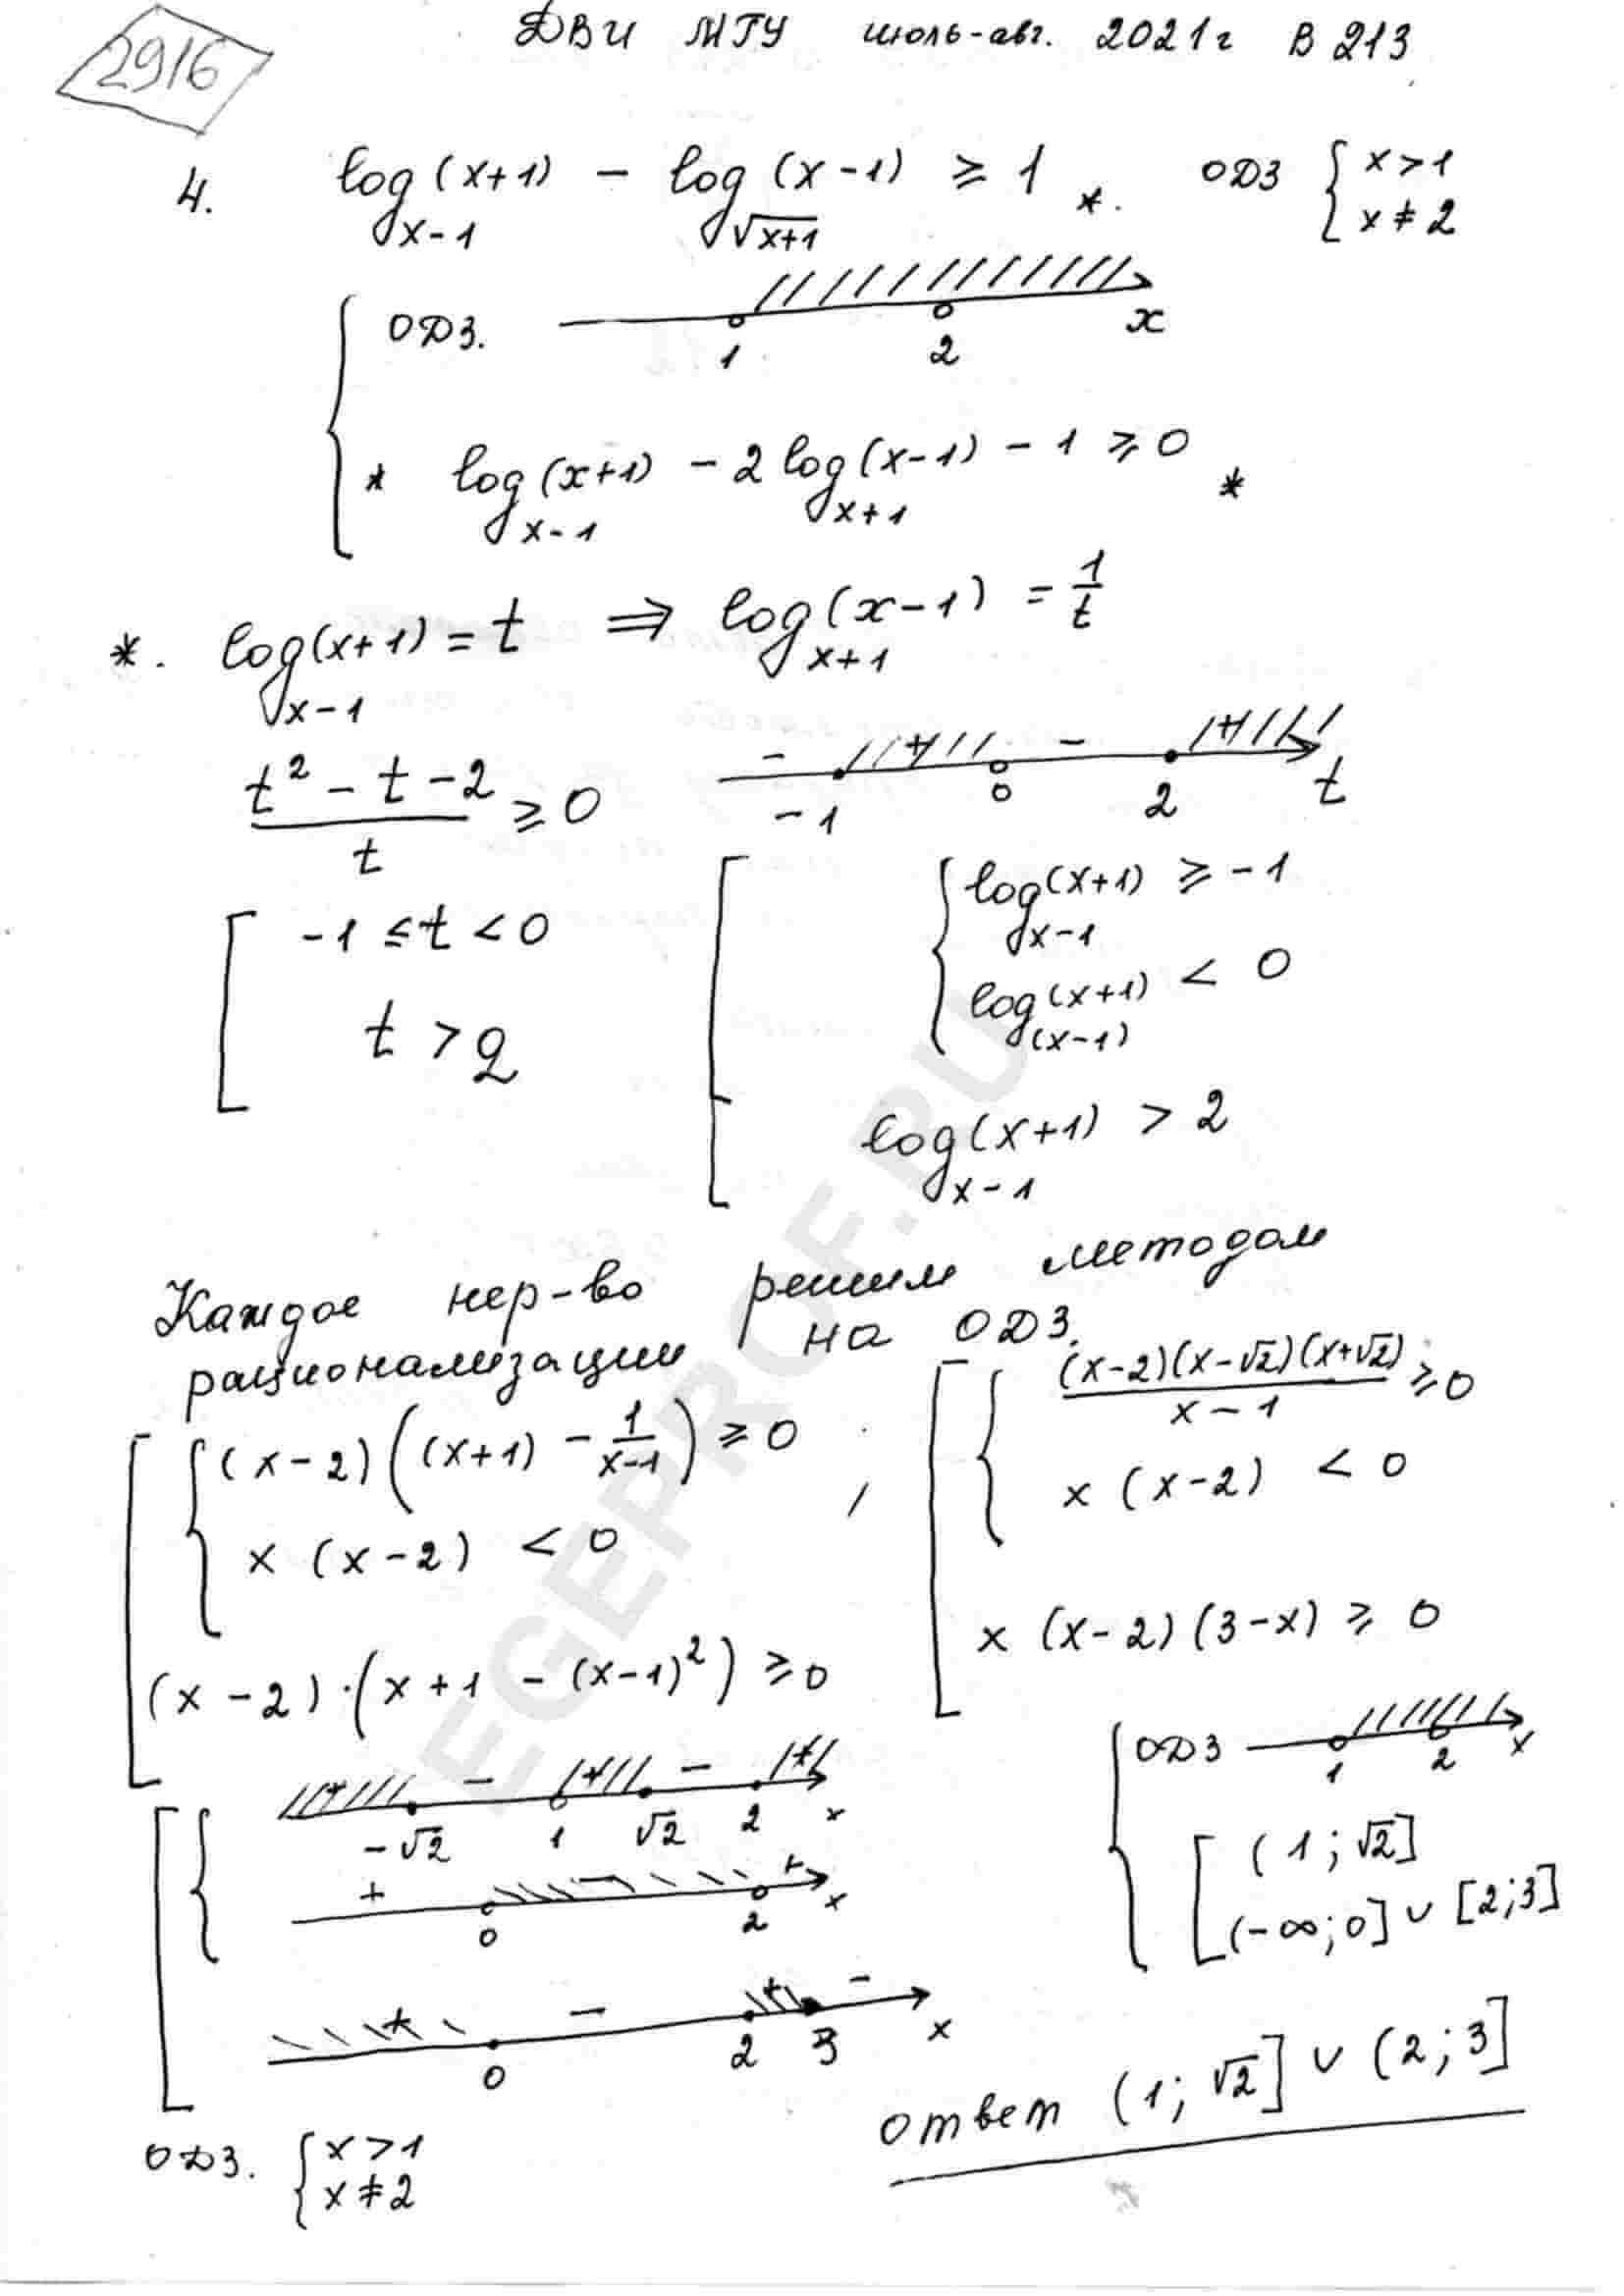 2916
ДВИ МГУ июль-авг. 2021г В 213
4. log_{x-1}(x+1) - log_{√(x+1)}(x-1) ≥ 1 *. ОДЗ { x>1
x≠2
ОДЗ. 1 2 x
* log_{x-1}(x+1) - 2 log_{x+1}(x-1) - 1 ≥ 0 *
*. log_{x-1}(x+1) = t ⇒ log_{x+1}(x-1) = 1/t
(t² - t - 2)/t ≥ 0 - + - + -1 0 2 t
[ -1 ≤ t < 0
t > 2
[ { log_{x-1}(x+1) ≥ -1
log_{(x-1)}(x+1) < 0
log_{x-1}(x+1) > 2
Каждое нер-во решим методом
рационализации на ОДЗ.
[ { (x-2)((x+1) - 1/(x-1)) ≥ 0
x(x-2) < 0
(x-2)·(x+1 - (x-1)²) ≥ 0
, [ { (x-2)(x-√2)(x+√2)/(x-1) ≥ 0
x(x-2) < 0
x(x-2)(3-x) ≥ 0
[ { + - + - + -√2 1 √2 2 x
+ - + 0 2 x
+ - + - 0 2 3 x
ОДЗ. { x>1
x≠2
{ ОДЗ 1 2 x
[ (1; √2]
(-∞; 0] ∪ [2; 3]
ответ (1; √2] ∪ (2; 3]
EGEPROF.RU